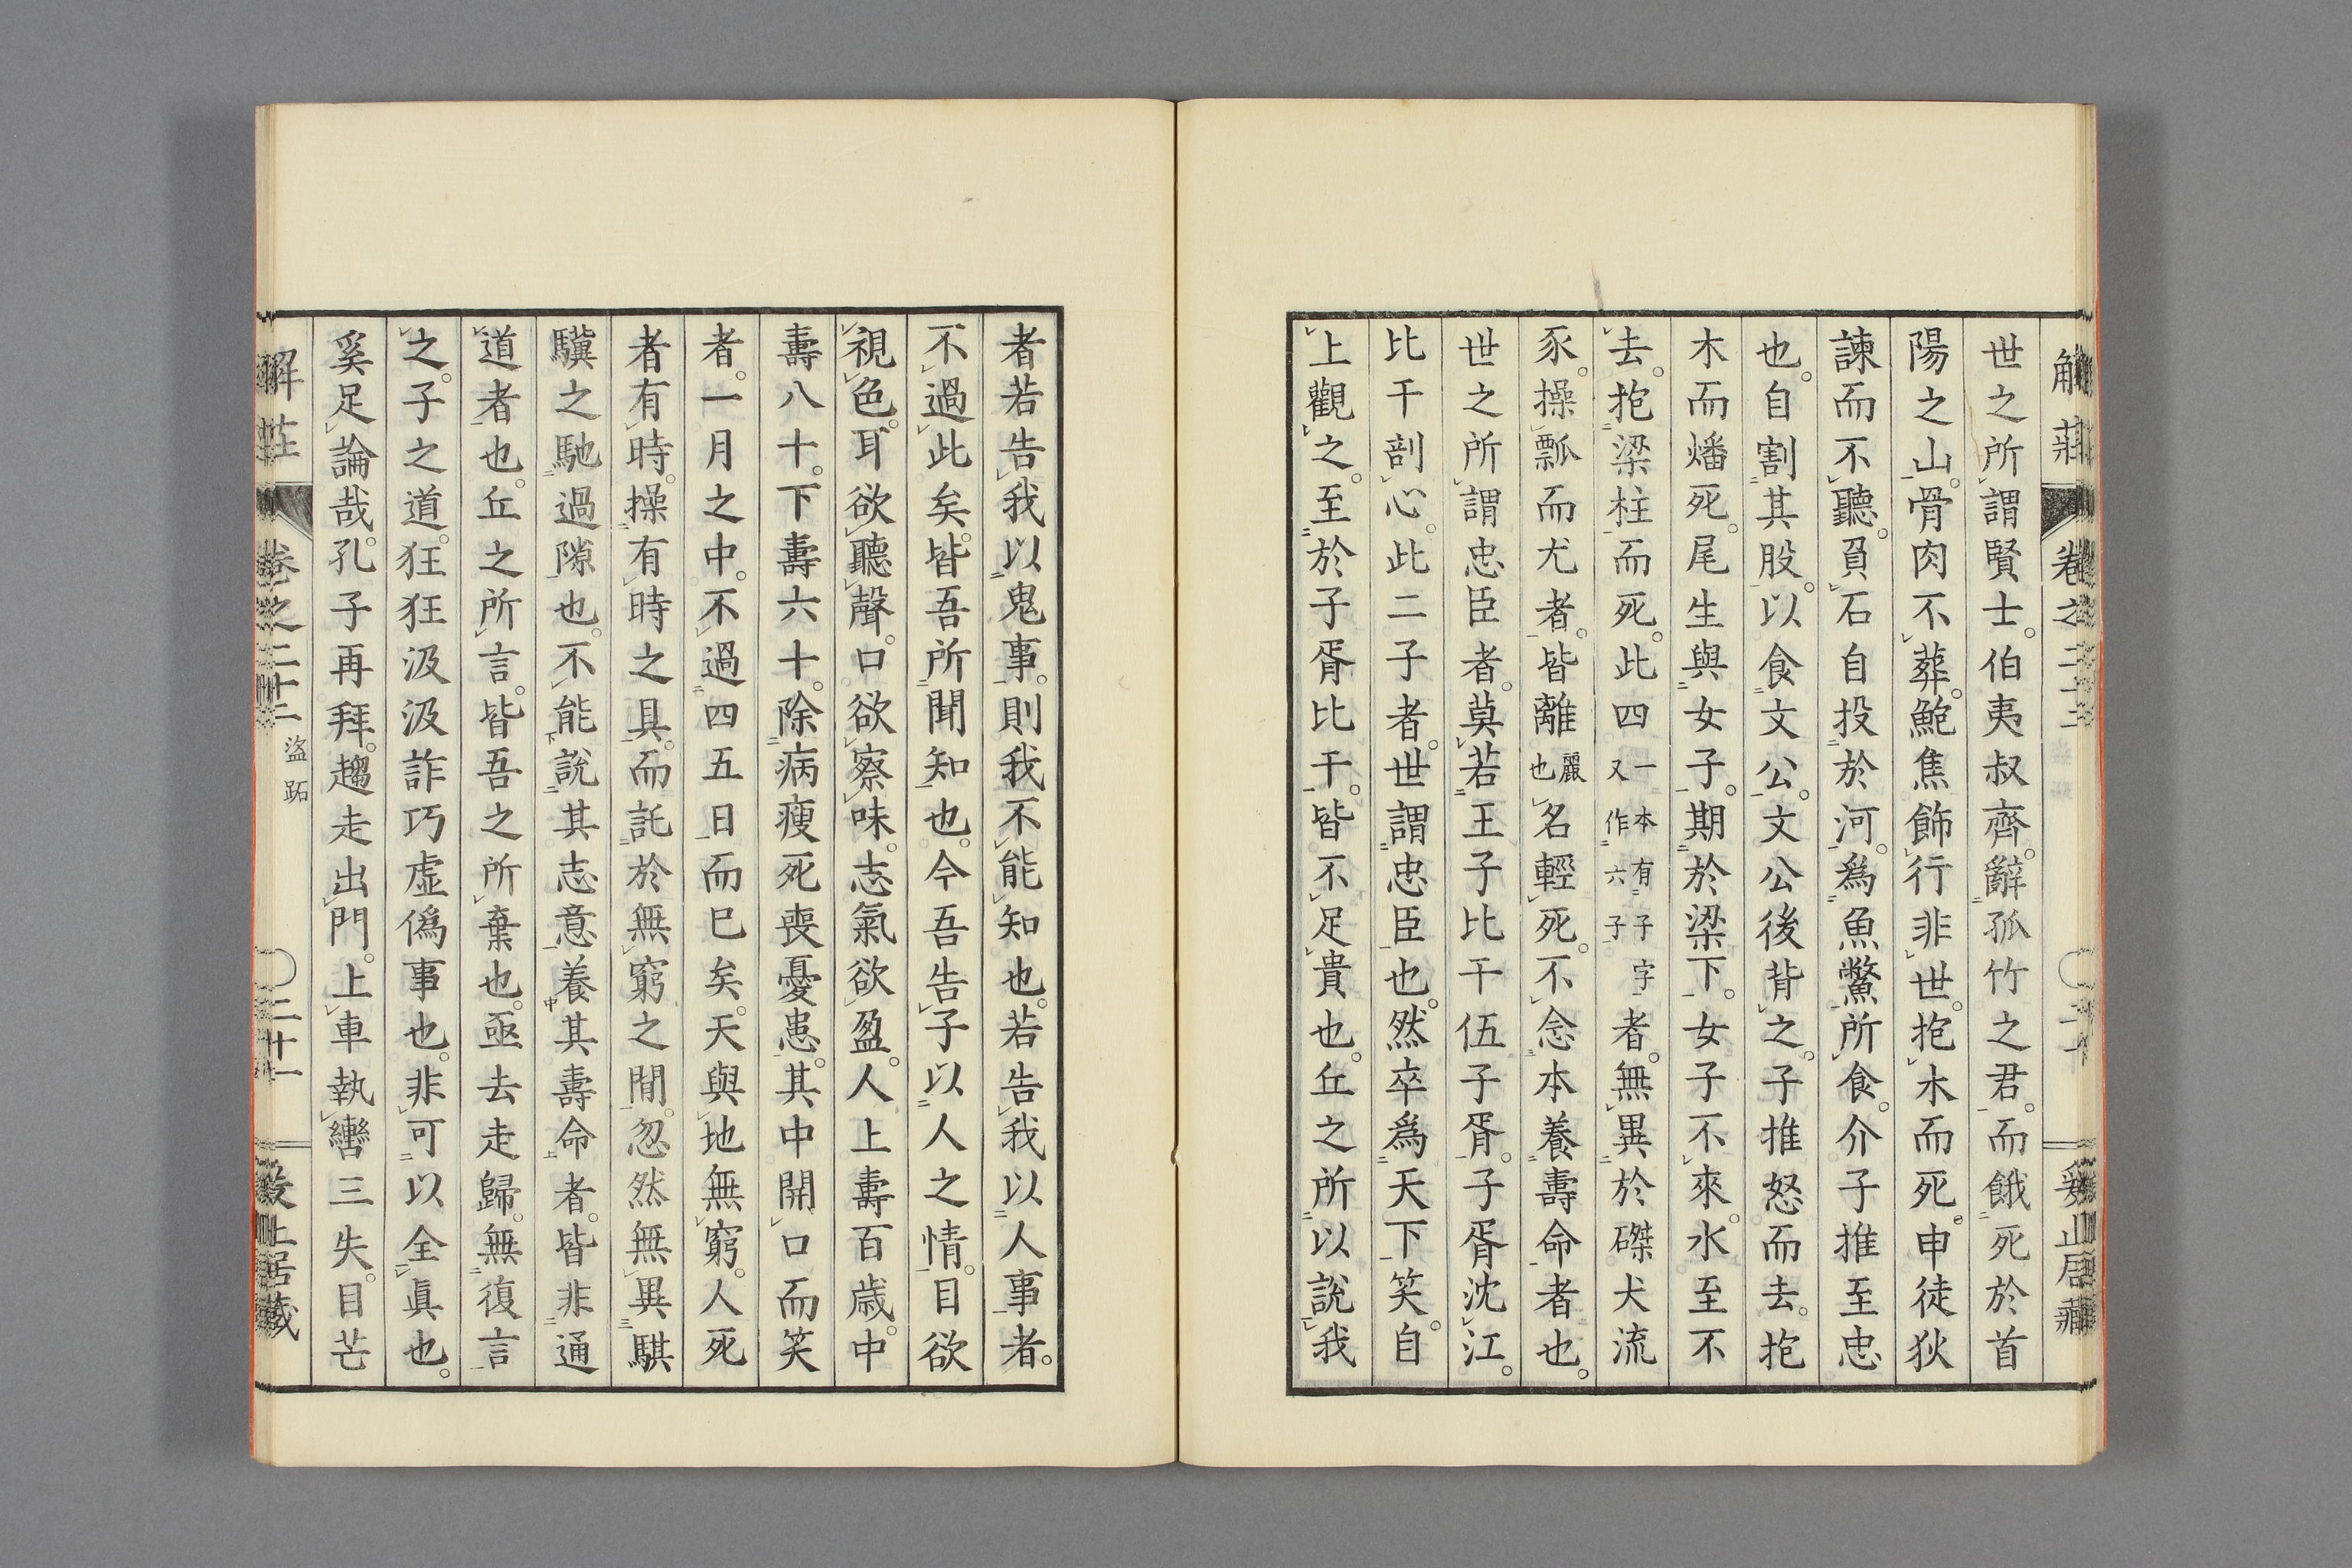 解莊 卷之二十二 二十 殺止居藏
世之所謂賢士。伯夷叔齊。辭孤竹之君。而餓死於首
陽之山。骨肉不葬。鮑焦飾行非世。抱木而死。申徒狄
諫而不聽。負石自投於河。爲魚鱉所食。介子推至忠
也。自割其股。以食文公。文公後背之。子推怒而去。抱
木而燔死。尾生與女子。期於梁下。女子不來。水至不
去。抱梁柱而死。此四一本有子字又作六子者。無異於磔犬流
豕。操瓢而尤者。皆離麗也名輕死。不念本養壽命者也。
世之所謂忠臣者。莫若王子比干伍子胥。子胥沈江。
比干剖心。此二子者。世謂忠臣也。然卒爲天下笑。自
上觀之。至於子胥比干。皆不足貴也。丘之所以說我
者若告我以鬼事。則我不能知也。若告我以人事者。
不過此矣。皆吾所聞知也。今吾告子以人之情。目欲
視色。耳欲聽聲。口欲察味。志氣欲盈。人上壽百歲。中
壽八十。下壽六十。除病瘦死喪憂患。其中開口而笑
者。一月之中。不過四五日而已矣。天與地無窮。人死
者有時。操有時之具。而託於無窮之閒。忽然無異騏
驥之馳過隙也。不能說其志意養其壽命者。皆非通
道者也。丘之所言。皆吾之所棄也。亟去走歸。無復言
之。子之道。狂狂汲汲詐巧虛僞事也。非可以全眞也。
奚足論哉。孔子再拜。趨走出門。上車執轡三失。目芒
解莊 卷之二十二 盜跖 二十一 殺止居藏